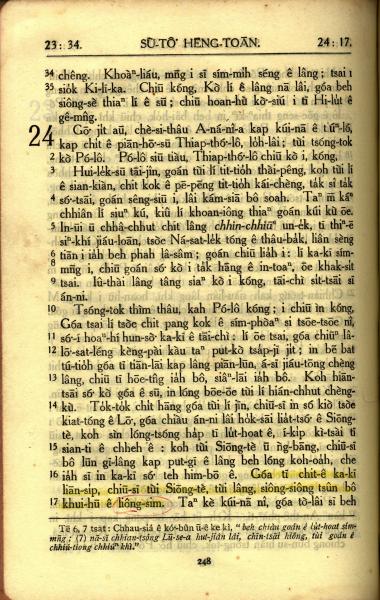 23: 34.
SÙ-TÔ͘ HĒNG-TOĀN.
24: 17.
34 chêng. Khoàⁿ-liáu, mn̄g i sī sím-mih séng ê lâng; tsai i
35 sio̍k Ki-lí-ka. Chiū kóng, Kò lí ê lâng nā lâi, góa beh
siông-sè thiaⁿ lí ê sū; chiū hoan-hù kò͘-siú i tī Hi-lu̍t ê
gê-mn̂g.
24 Gō͘ ji̍t aū, chè-si-thâu A-ná-nî-a kap kúi-nā ê tiúⁿ-ló,
kap chi̍t ê piān-hō͘-sū Thiap-thó͘-lô, lo̍h-lâi; tùi tsóng-tok
2 kò Pó-lô. Pó-lô siū tiàu, Thiap-thó͘-lô chiū kò i, kóng,
3 Hui-le̍k-sū tāi-jîn, goán tùi lí tit-tio̍h thài-pêng, koh tùi lí
ê sian-kiàn, chit kok ê pē-pēng tit-tio̍h kái-chèng, ta̍k sî ta̍k
4 só͘-tsāi, goán sêng-siū i, lâi kám-siā bô soah. Taⁿ m̄ káⁿ
chhiân lí siuⁿ kú, kiû lí khoan-iông thiaⁿ goán kúi kù ōe.
5 In-ūi ū chhâ-chhut chit lâng chhin-chhiūⁿ un-e̍k, tī thiⁿ-ē
siⁿ-khí jiáu-loān, tsòe Ná-sat-le̍k tóng ê thâu-ba̍k, liân sèng
6 tiān i ia̍h beh phah lâ-sâm; goán chiū lia̍h i: lí ka-kī sím-
8 mn̄g i, chiū goán só͘ kò i ta̍k hāng ê in-toaⁿ, ōe khak-si̍t
9 tsai. Iû-thài lâng tâng siaⁿ kò i kóng, tāi-chì si̍t-tsāi sī
án-ni.
10 Tsóng-tok thìm thâu, kah Pó-lô kóng; i chiū ìn kóng,
Góa tsai lí tsòe chit pang kok ê sím-phòaⁿ sī tsōe-tsōe nî,
11 só͘-í hoaⁿ-hí hun-sò͘ ka-kī ê tāi-chì: lí ōe tsai, góa chiūⁿ Iâ-
12 lō͘-sat-léng kèng-pài kàu taⁿ put-kò tsa̍p-jī ji̍t; in bē bat
tú-tio̍h góa tī tiān-lāi kap lâng piān-lūn, á-sī jiáu-tōng chèng
13 lâng, chiū tī hōe-tn̂g ia̍h bô, siâⁿ-lāi ia̍h bô. Koh hiān-
tsāi só͘ kò góa ê sū, in lóng bōe-ōe tùi lí hián-chhut chèng-
14 kù. To̍k-to̍k chi̍t hāng góa tùi lí jīn, chiū-sī in só͘ kiò tsòe
kiat-tóng ê Lō͘, góa chiàu án-ni lâi ho̍k-sāi lia̍t-tsó͘ ê Siōng-
15 tè, koh sìn lóng-tsóng ha̍p tī lu̍t-hoat ê, í-ki̍p kì-tsài tī
sian-ti ê chheh ê: koh tùi Siōng-tè ū n̄g-bāng, chiū-sī
bô lūn gī-lâng kap put-gī ê lâng beh lóng koh-oa̍h, che
16 ia̍h sī in ka-kī só͘ teh him-bō ê. Góa tī chit-ê ka-kī
liān-si̍p, chiū-sī tùi Siōng-tè, tùi lâng, siông-siông tsûn bô
17 khui-hū ê liông-sim. Taⁿ kè kúi-nā nî, góa tò-lâi sī beh
Tē 6, 7 tsat: Chhau-siá ê kó͘-bûn ū-ê ke kì, “beh chiàu goán ê lu̍t-hoat sím-
mn̄g; (7) nā-sī chhian-tsóng Lū-se-a hut-jiân lâi, chīn-tsāi kiông, tùi goán ê
chhiú-tiong chhiúⁿ khì.”
248